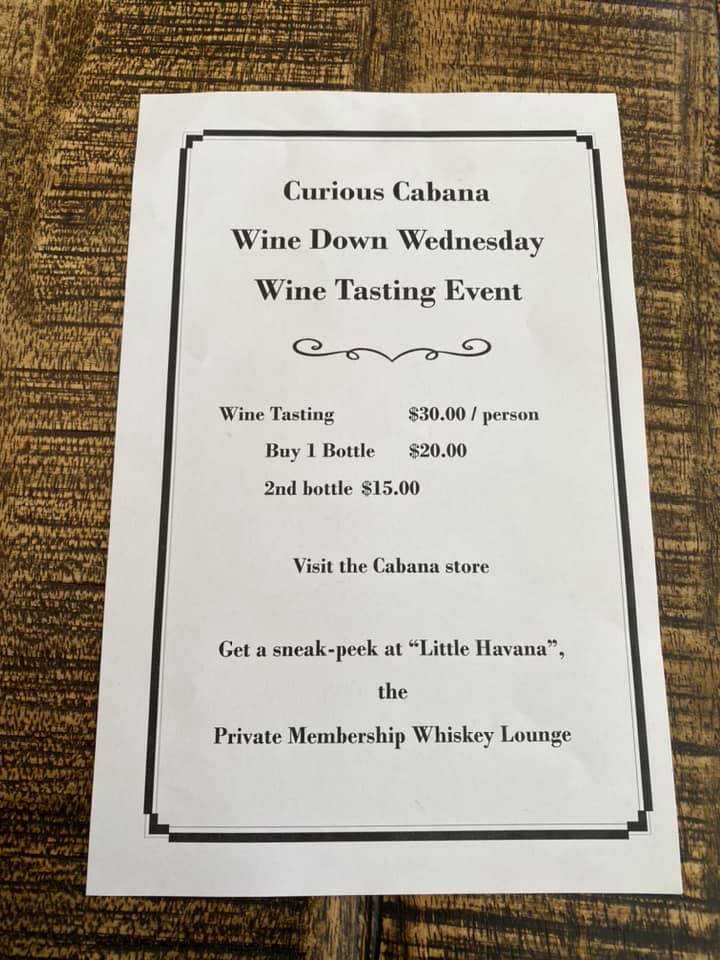 Curious Cabana
Wine Down Wednesday
Wine Tasting Event
Wine Tasting $30.00 / person
Buy 1 Bottle $20.00
2nd bottle $15.00
Visit the Cabana store
Get a sneak-peek at “Little Havana”,
the
Private Membership Whiskey Lounge